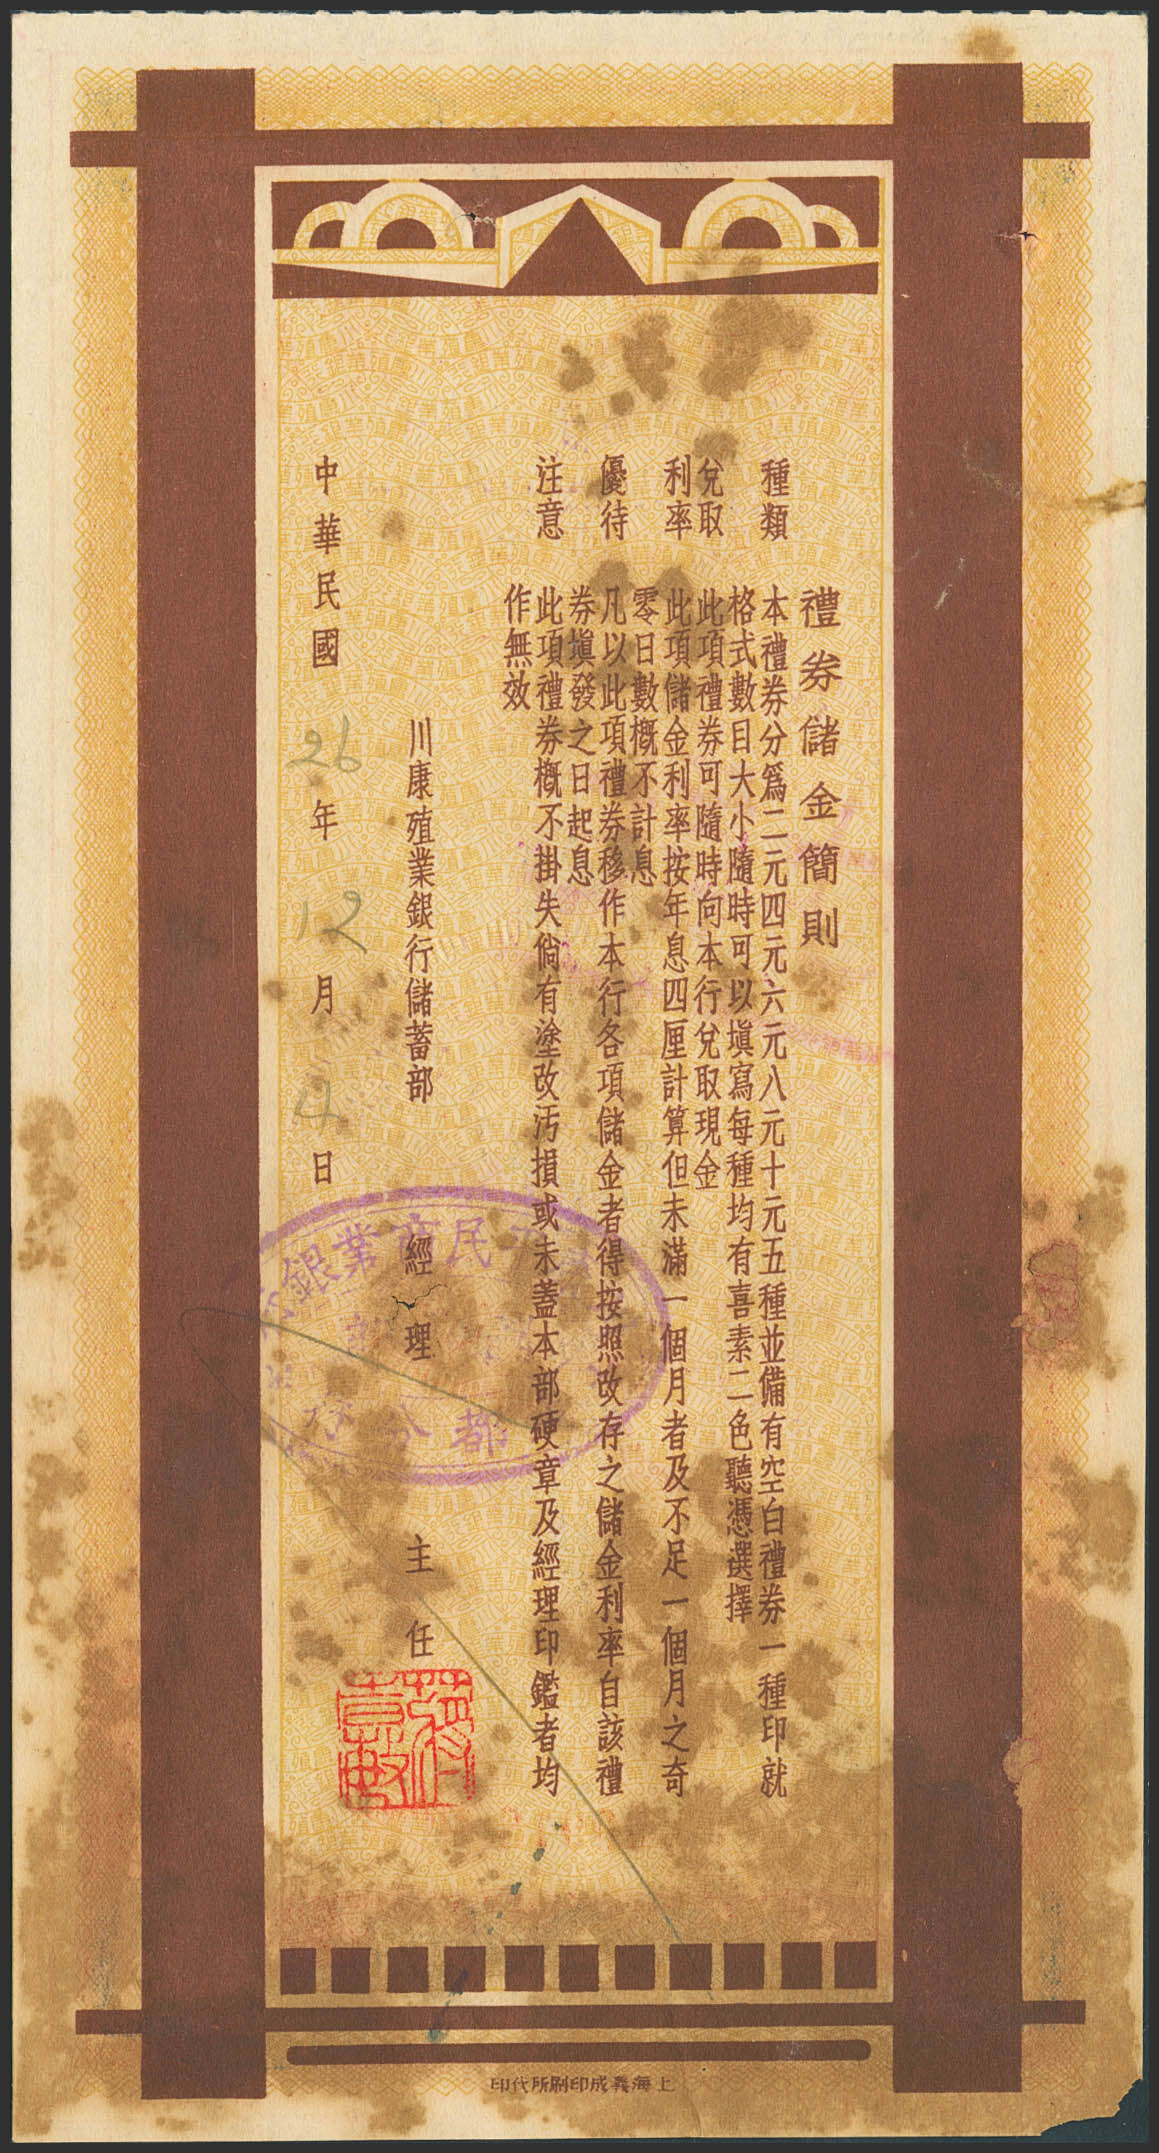 禮券儲金簡則
種類　本禮券分爲二元四元六元八元十元五種並備有空白禮券一種印就
格式數目大小隨時可以塡寫每種均有喜素二色聽憑選擇
兌取　此項禮券可隨時向本行兌取現金
利率　此項儲金利率按年息四厘計算但未滿一個月者及不足一個月之奇
零日數概不計息
優待　凡以此項禮券移作本行各項儲金者得按照改存之儲金利率自該禮
券塡發之日起息
注意　此項禮券概不掛失倘有塗改汚損或未蓋本部硬章及經理印鑑者均
作無效
川康殖業銀行儲蓄部　經理　主任
中華民國26年12月4日
上海義成印刷所代印